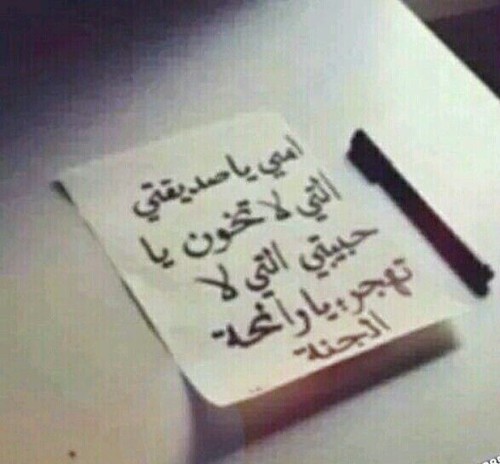 امي يا صديقتي
التي لا تخون يا
حبيبتي التي لا
تهجر؛ يا رائحة
الجنة